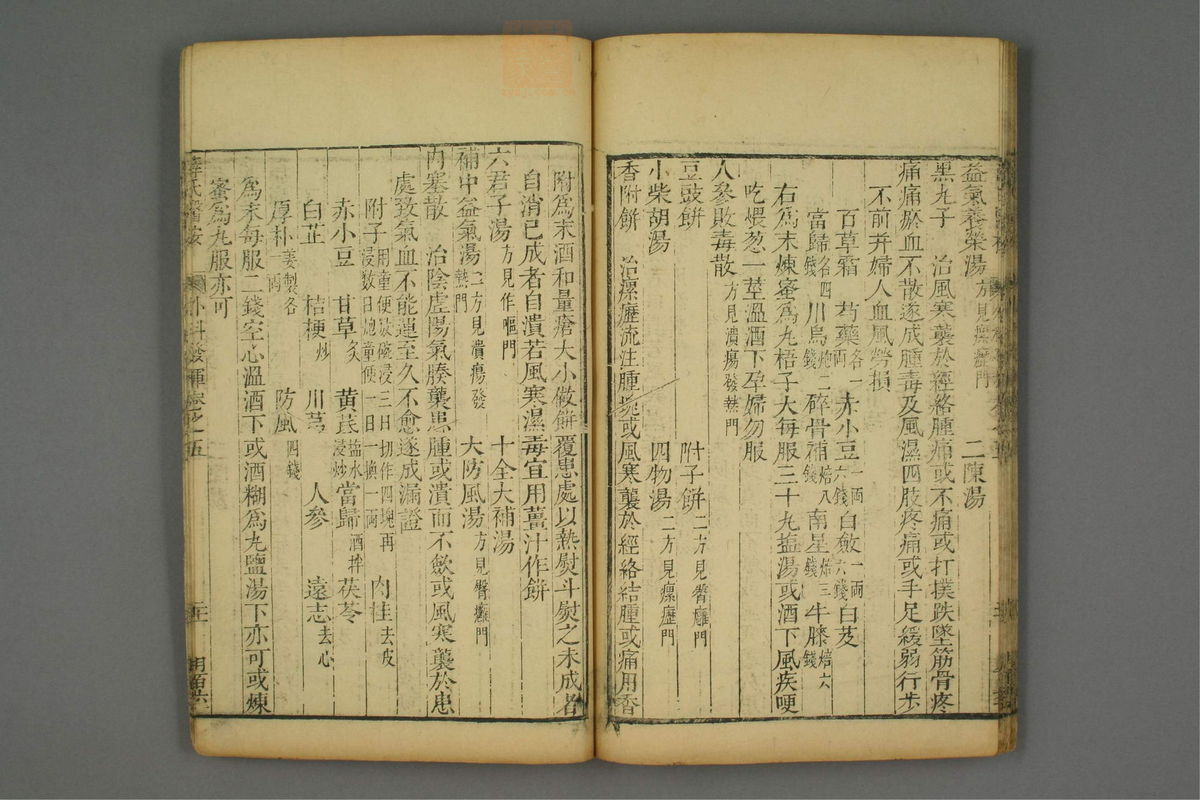 益氣養榮湯方見瘰癧門　二陳湯
黑丸子　治風寒襲於經絡腫痛或不痛或打撲跌墜筋骨疼
痛痛瘀血不散遂成腫毒及風濕四肢疼痛或手足緩弱行步
不前并婦人血風勞損
百草霜　芍藥各一兩　赤小豆一兩六錢　白斂一兩六錢　白芨
當歸各四錢　川烏炮二錢　碎骨補焙八錢　南星焙三錢　牛膝焙六錢
右爲末煉蜜爲丸梧子大每服三十丸塩湯或酒下風疾哽
吃煨葱一莖溫酒下孕婦勿服
人參敗毒散方見潰瘍發熱門
豆豉餅　附子餅二方見臀癰門
小柴胡湯　四物湯二方見瘰癧門
香附餅　治瘰癧流注腫塊或風寒襲於經絡結腫或痛用香
附爲末酒和量瘡大小做餅覆患處以熱熨斗熨之未成者
自消已成者自潰若風寒濕毒宜用薑汁作餅
六君子湯方見作嘔門　十全大補湯
補中益氣湯二方見潰瘍發熱門　大防風湯方見臀癰門
內塞散　治陰虛陽氣腠襲患腫或潰而不歛或風寒襲於患
處致氣血不能運至久不愈遂成漏證
附子用童便放碗浸三日切作四塊再浸数日炮童便一日一換一兩　肉桂去皮
赤小豆　甘草炙　黃芪盐水浸炒　當歸酒拌　茯苓
白芷　桔梗炒　川芎　人參　遠志去心
厚朴姜製各一兩　防風四錢
爲末每服二錢空心溫酒下或酒糊爲丸鹽湯下亦可或煉
蜜爲丸服亦可
薛氏醫案　外科發揮卷之五